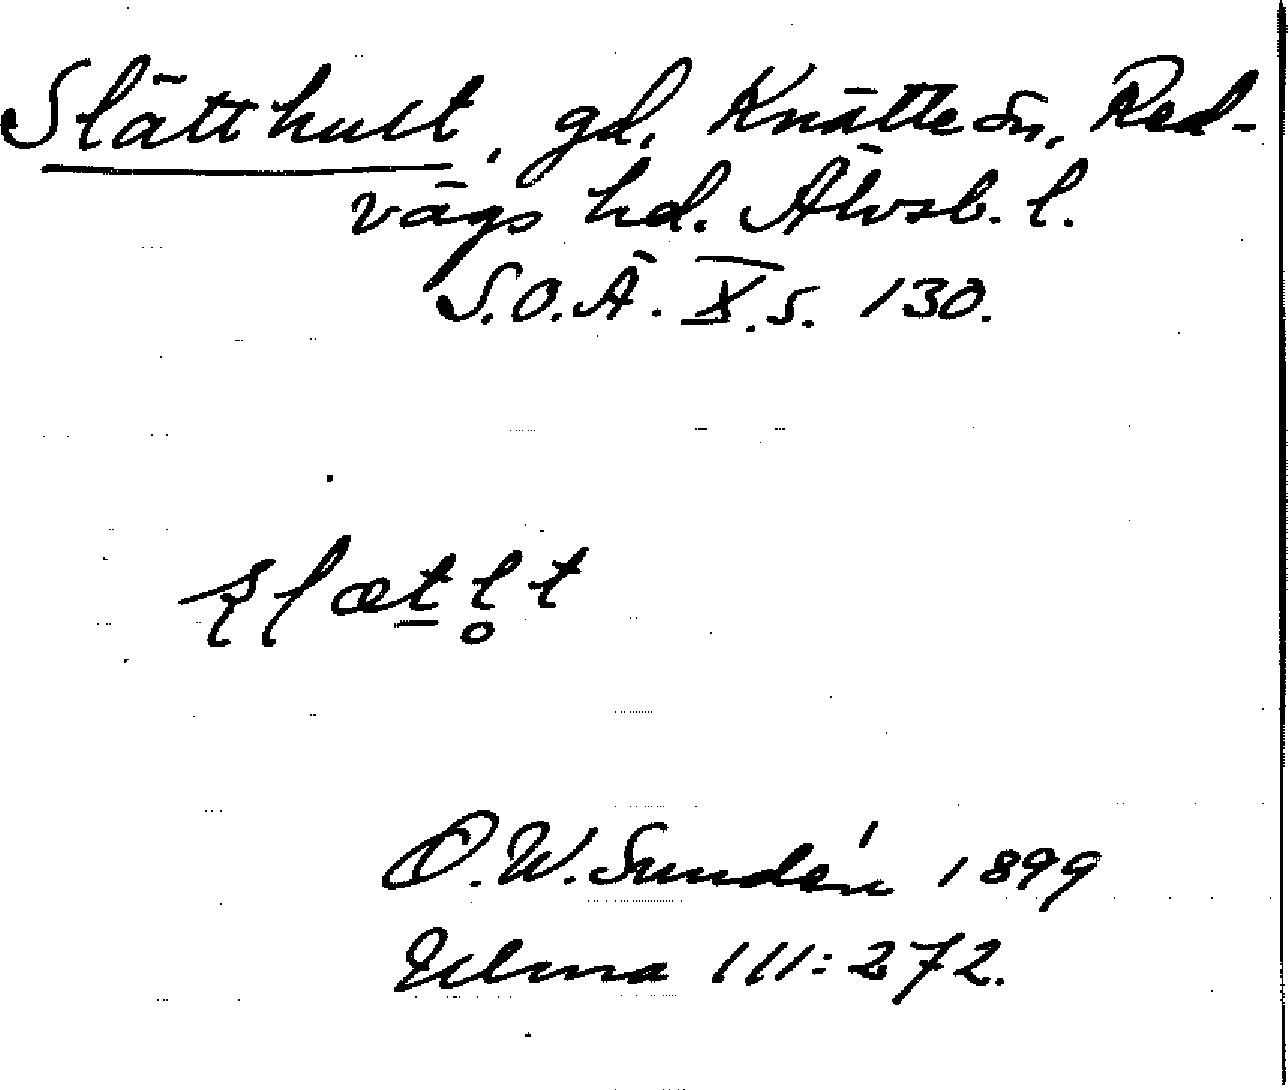 Slätthult, gd. Knätte sn, Red-
vägs hd. Älvsb. l.
S.O.Ä. X. s. 130.
O.W. Sundén 1899
Ulma 111:272.